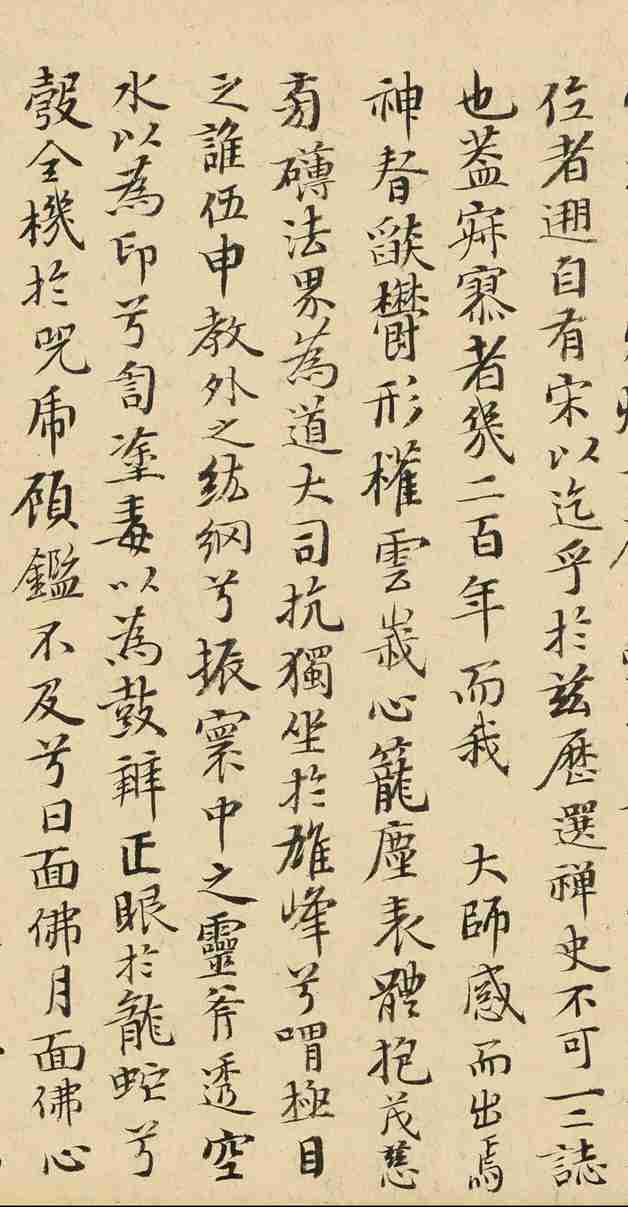 位者迥自有宋以迄乎於茲歷選禪史不可一二誌
也蓋寂寥者幾二百年而我 大師感而出焉
神督燄欝形權雲峩心籠塵表體抱茂慈
旁礴法界為道大司抗獨坐於雄峰兮喟極目
之誰伍申教外之紘綱兮振寰中之靈斧透空
水以為印兮匋塗毒以為鼓辧正眼於龍蛇兮
彀全機於兕虎顧鑑不及兮日面佛月面佛心